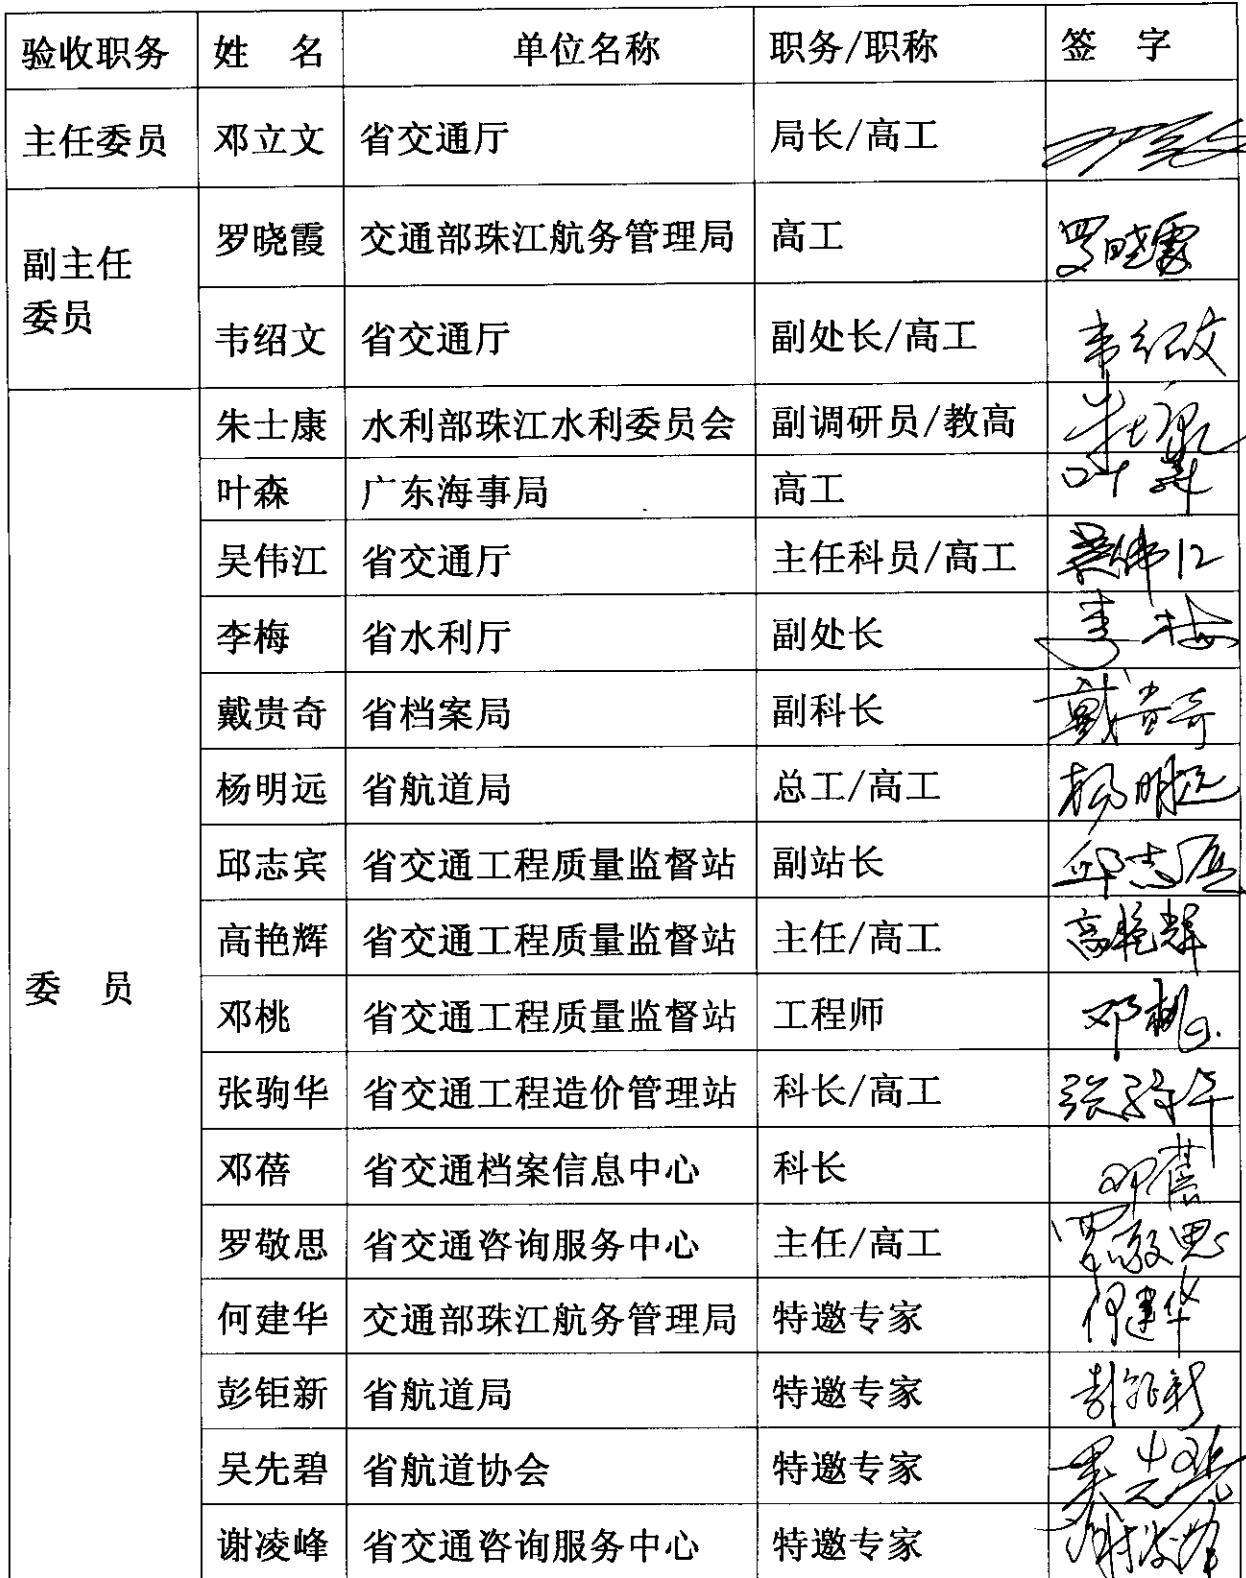 验收职务 姓 名 单位名称 职务/职称 签 字
主任委员 邓立文 省交通厅 局长/高工
副主任
委员
罗晓霞 交通部珠江航务管理局 高工 罗晓霞
韦绍文 省交通厅 副处长/高工 韦绍文
委 员
朱士康 水利部珠江水利委员会 副调研员/教高 朱士康
叶森 广东海事局 高工 叶森
吴伟江 省交通厅 主任科员/高工 吴伟江
李梅 省水利厅 副处长 李梅
戴贵奇 省档案局 副科长 戴贵奇
杨明远 省航道局 总工/高工 杨明远
邱志宾 省交通工程质量监督站 副站长 邱志宾
高艳辉 省交通工程质量监督站 主任/高工 高艳辉
邓桃 省交通工程质量监督站 工程师 邓桃
张驹华 省交通工程造价管理站 科长/高工 张驹华
邓蓓 省交通档案信息中心 科长 邓蓓
罗敬思 省交通咨询服务中心 主任/高工 罗敬思
何建华 交通部珠江航务管理局 特邀专家 何建华
彭钜新 省航道局 特邀专家 彭钜新
吴先碧 省航道协会 特邀专家 吴先碧
谢凌峰 省交通咨询服务中心 特邀专家 谢凌峰